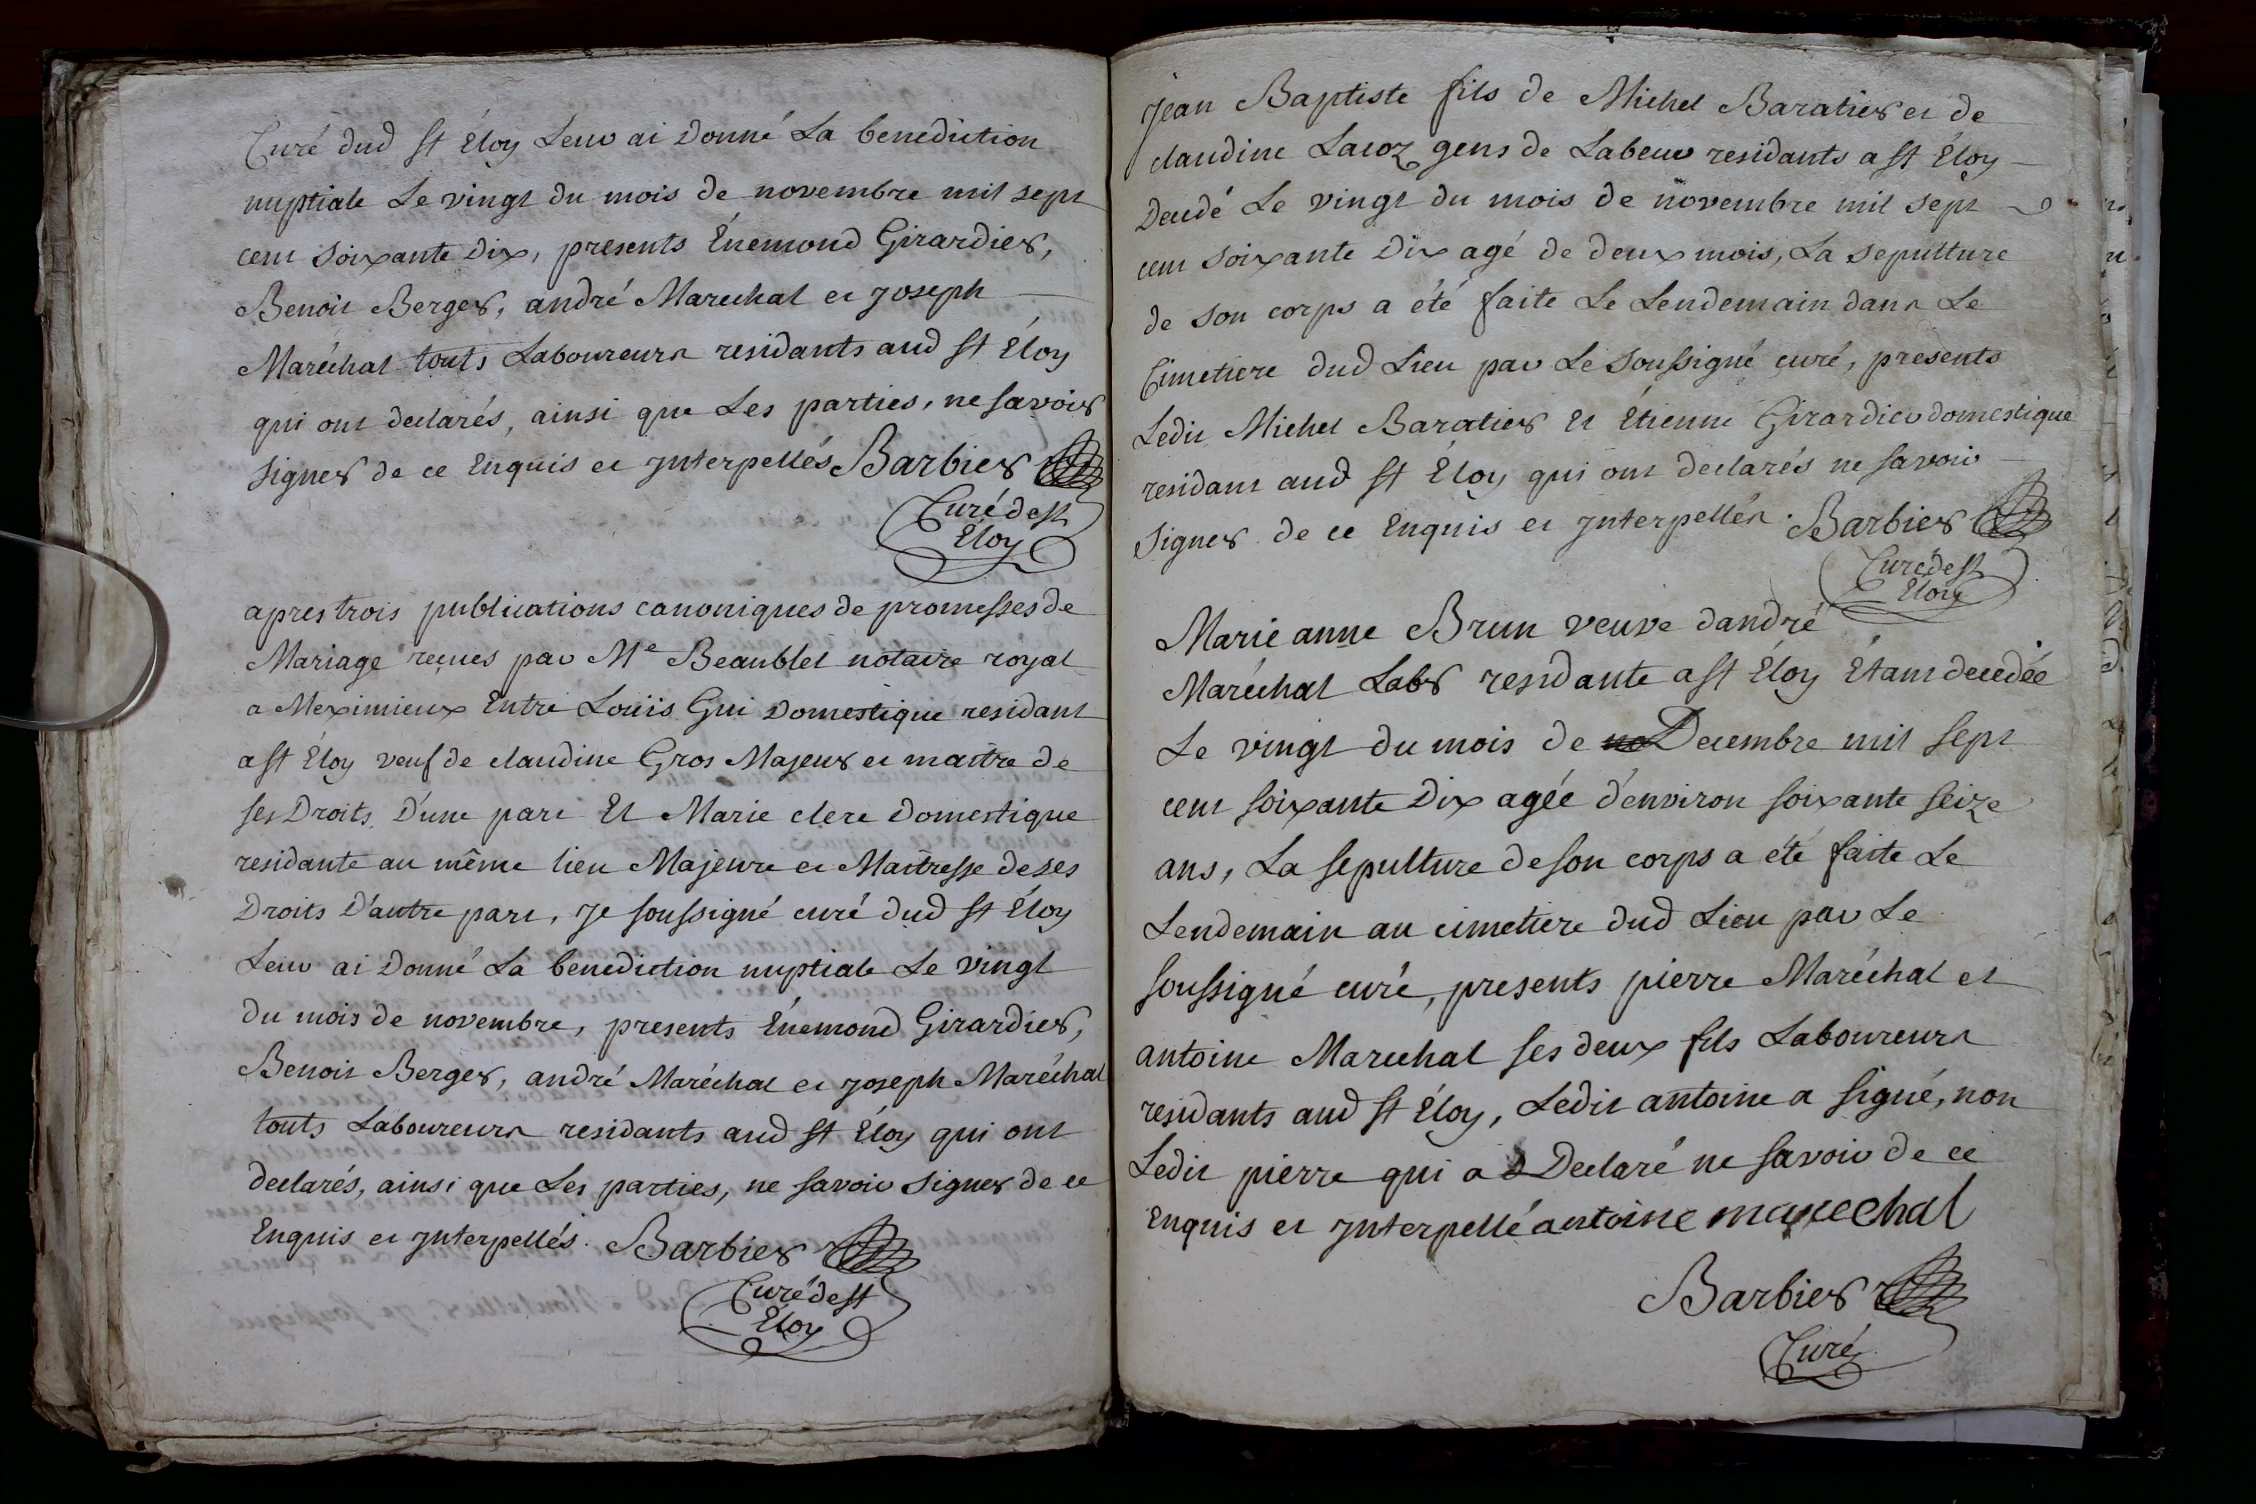 Curé dud St Éloy Leur ai Donné La benediction
nuptiale Le vingt du mois de novembre mil sept
cent soixante Dix, presents Énemond Girardier,
Benoit Berger, andré Marechal et joseph
Maréchal touts Laboureurs residants aud St Éloy
qui ont declarés, ainsi que Les parties, ne savoir
signer de ce Enquis et jnterpellés Barbier
Curé de St
Éloy
apres trois publications canoniques de promesses de
Mariage reçues par Me Beaublet notaire royal
a Meximieux Entre Louis Gui Domestique residant
a St Éloy veuf de claudine Gros Majeur et maitre de
ses Droits D'une part Et Marie clere Domestique
residante au même lieu Majeure et Maitresse de ses
Droits D'autre part, je soussigné curé dud St Éloy
Leur ai Donné La benediction nuptiale Le vingt
du mois de novembre, presents Énemond Girardier,
Benoit Berger, andré Maréchal et joseph Maréchal
touts Laboureurs residants aud St Éloy qui ont
declarés, ainsi que Les parties, ne savoir signer de ce
Enquis et jnterpellés. Barbier
Curé de St
Éloy
jean Baptiste fils de Michel Baratier et de
claudine Lacoz gens de Labeur residants a St Éloy
Decedé Le vingt du mois de novembre mil sept
cent soixante Dix agé de deux mois, La sepulture
de son corps a été faite Le Lendemain dans Le
Cimetiere dud Lieu par Le soussigné curé, presents
Ledit Michel Baratier Et Étienne Girardier domestique
residant aud St Éloy qui ont declarés ne savoir
signer de ce Enquis et jnterpellés. Barbier
Curé de St
Éloy
Marie anne Brun veuve d'andré
Maréchal Labr residante a St Éloy Étant decedée
Le vingt du mois de no Decembre mil sept
cent soixante Dix agée d'environ soixante seize
ans, La sepulture de son corps a été faite Le
Lendemain au cimetiere dud Lieu par Le
soussigné curé, presents pierre Maréchal et
antoine Marechal ses deux fils Laboureurs
residants aud St Éloy, Ledit antoine a signé, non
Ledit pierre qui a Declaré ne savoir de ce
Enquis et jnterpellé antoine marechal
Barbier
Curé